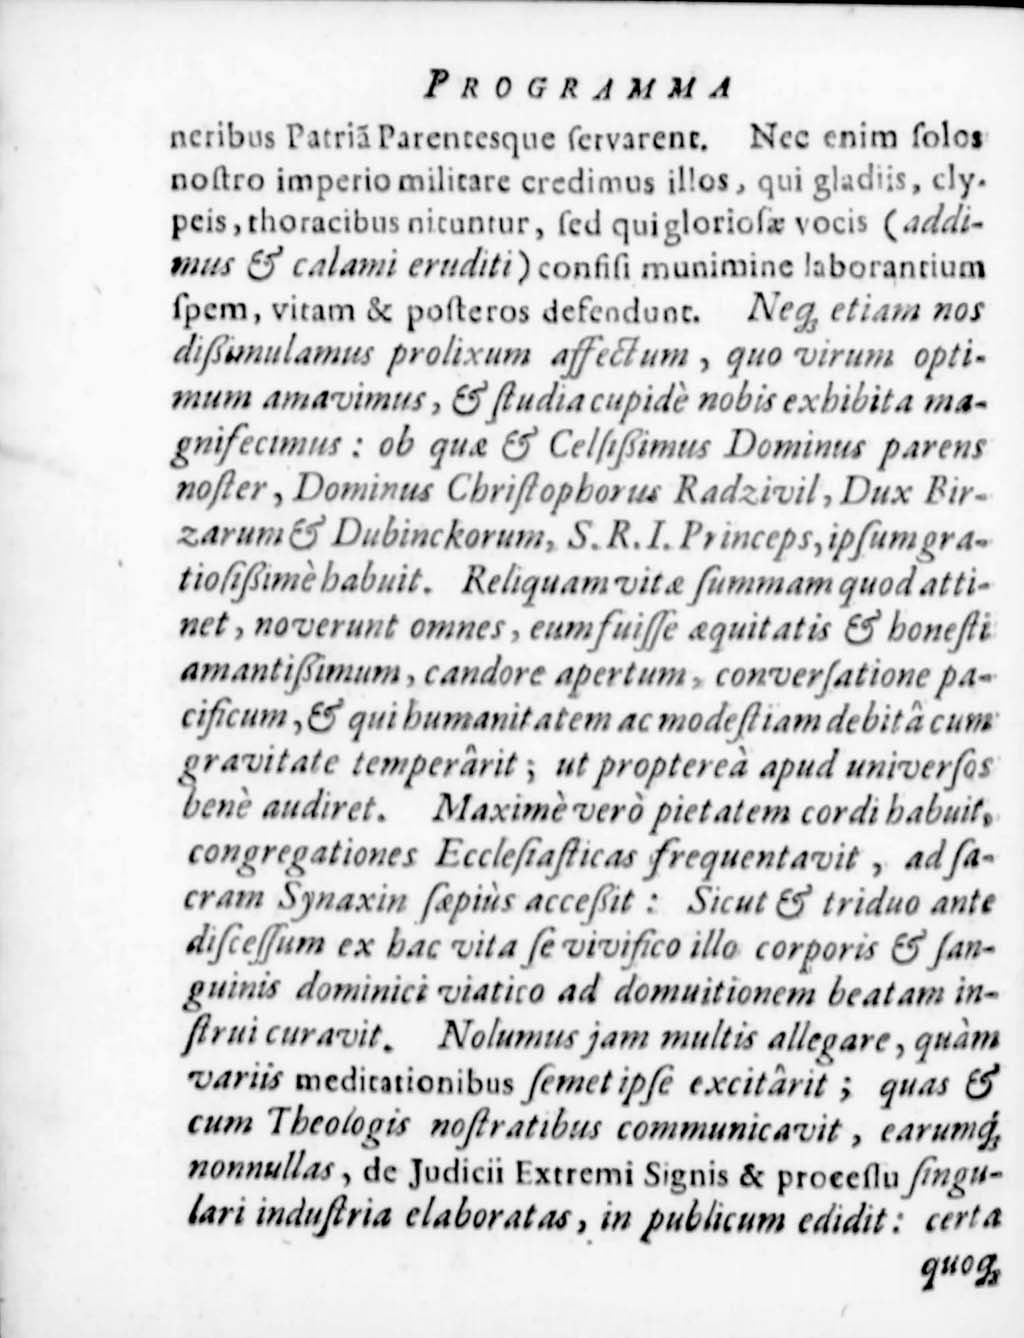 PROGRAMMA
neribus Patriã Parentesque ſervarent. Nec enim ſolos
noſtro imperio militare credimus illos, qui gladiis, cly-
peis, thoracibus nituntur, ſed qui glorioſæ vocis (addi-
mus & calami eruditi) confiſi munimine laborantium
ſpem, vitam & poſteros defendunt. Neq; etiam nos
dißimulamus prolixum affectum, quo virum opti-
mum amavimus, & ſtudia cupidè nobis exhibita ma-
gnifecimus: ob quæ & Celſißimus Dominus parens
noſter, Dominus Chriſtophorus Radzivil, Dux Bir-
zarum & Dubinckorum, S. R. I. Princeps, ipſum gra-
tioſißimè habuit. Reliquam vitæ ſummam quod atti-
net, noverunt omnes, eum fuiſſe æquitatis & honeſti
amantißimum, candore apertum, converſatione pa-
cificum, & qui humanitatem ac modeſtiam debitâ cum
gravitate temperârit; ut proptereà apud univerſos
benè audiret. Maximè verò pietatem cordi habuit,
congregationes Eccleſiaſticas frequentavit, ad ſa-
cram Synaxin ſæpiùs acceßit: Sicut & triduo ante
diſceſſum ex hac vita ſe vivifico illo corporis & ſan-
guinis dominici viatico ad domuitionem beatam in-
ſtrui curavit. Nolumus jam multis allegare, quàm
variis meditationibus ſemet ipſe excitârit; quas &
cum Theologis noſtratibus communicavit, earumq́;
nonnullas, de Judicii Extremi Signis & proceſſu ſingu-
lari induſtria elaboratas, in publicum edidit: certa
quoq;